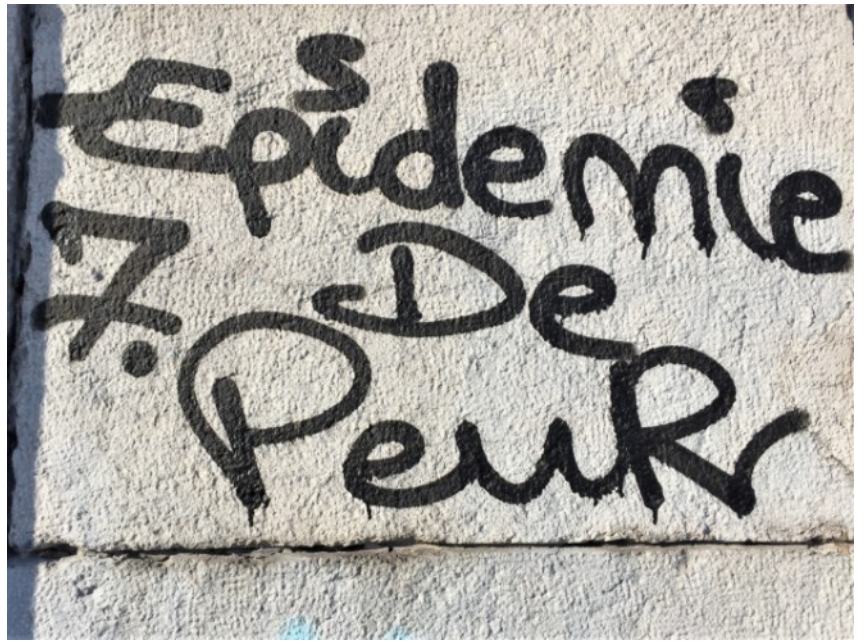 Epidemie
7. De
PeuR